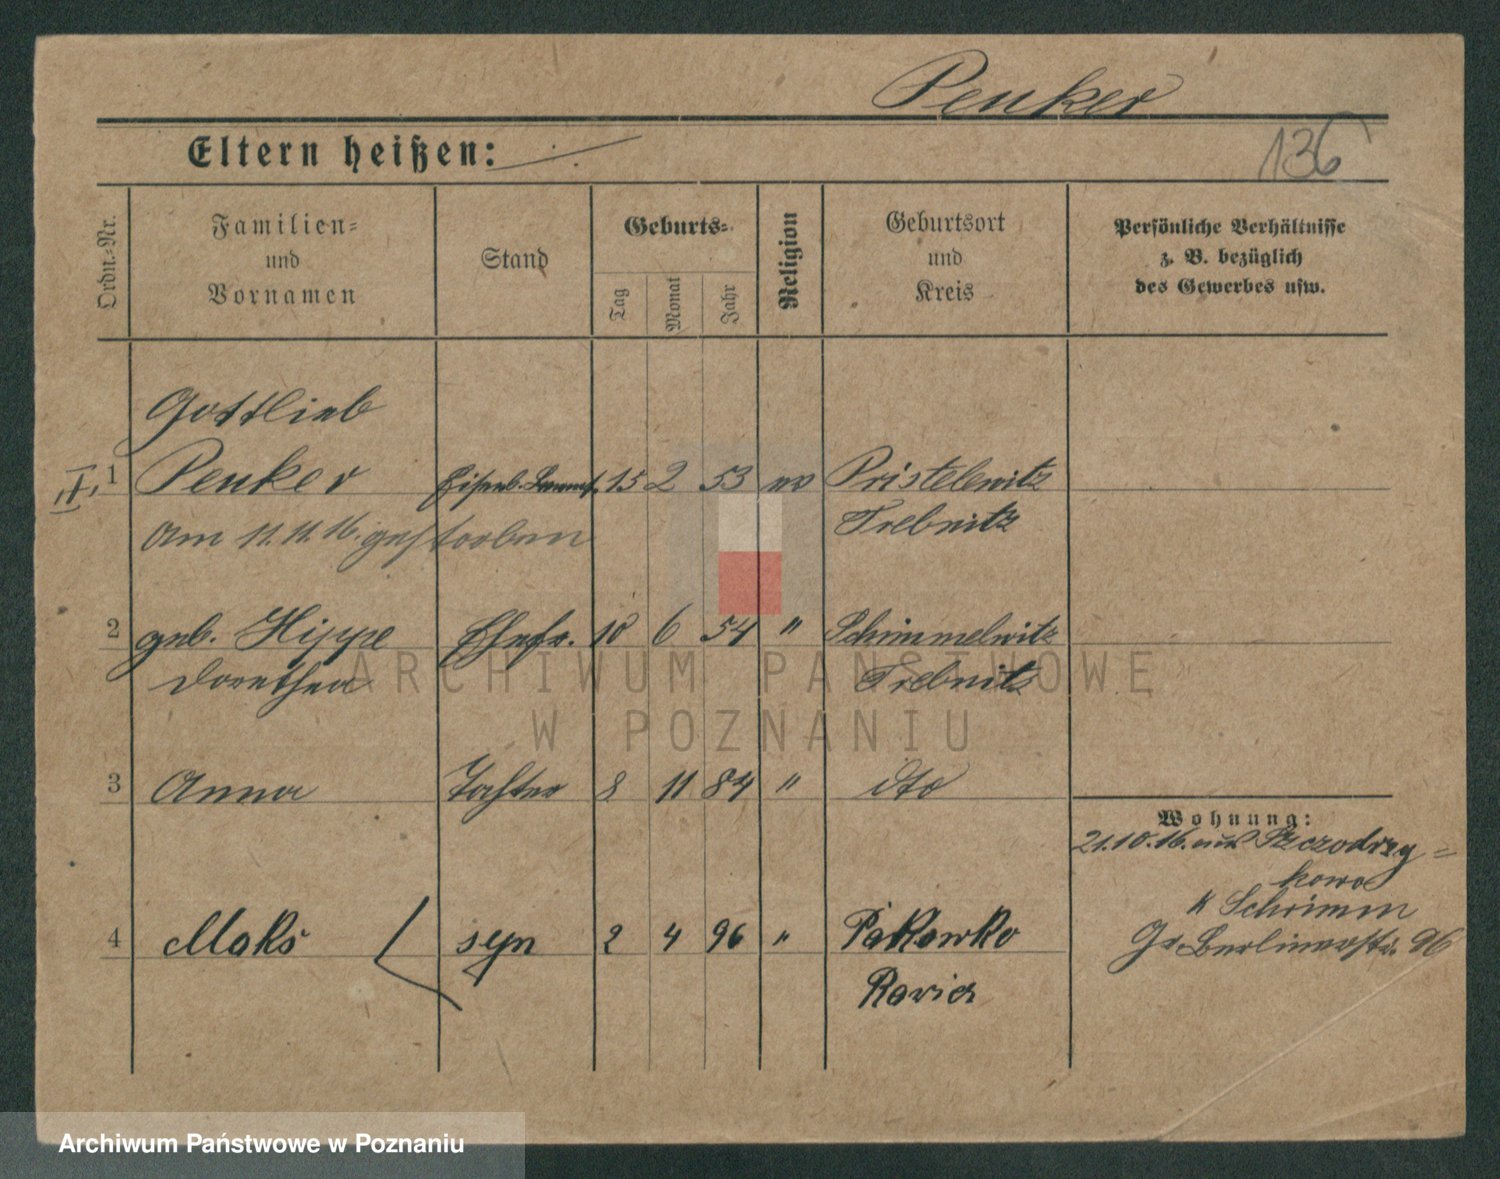 Penker
136
Eltern heißen:
Ordn.-Nr.
Familien-
und
Vornamen
Stand
Geburts-
Tag
Monat
Jahr
Religion
Geburtsort
und
Kreis
Persönliche Verhältnisse
z. B. bezüglich
des Gewerbes usw.
Gottlieb
1 Penker 15 2 53 ev Pristelwitz
Trebnitz
Am 11.11.16. gestorben
2 geb. Hippe Ehefr. 10 6 54 " Schimmelwitz
Dorothea Trebnitz
3 Anna Tochter 8 11 84 " dto
Wohnung:
21.10.16. aus Szczodrzy-
kowo
K Schrimm
4 Maks syn 2 4 96 " Pakowko
Gr Berlinerstr. 96
Rawicz
ARCHIWUM PAŃSTWOWE
W POZNANIU
Archiwum Państwowe w Poznaniu